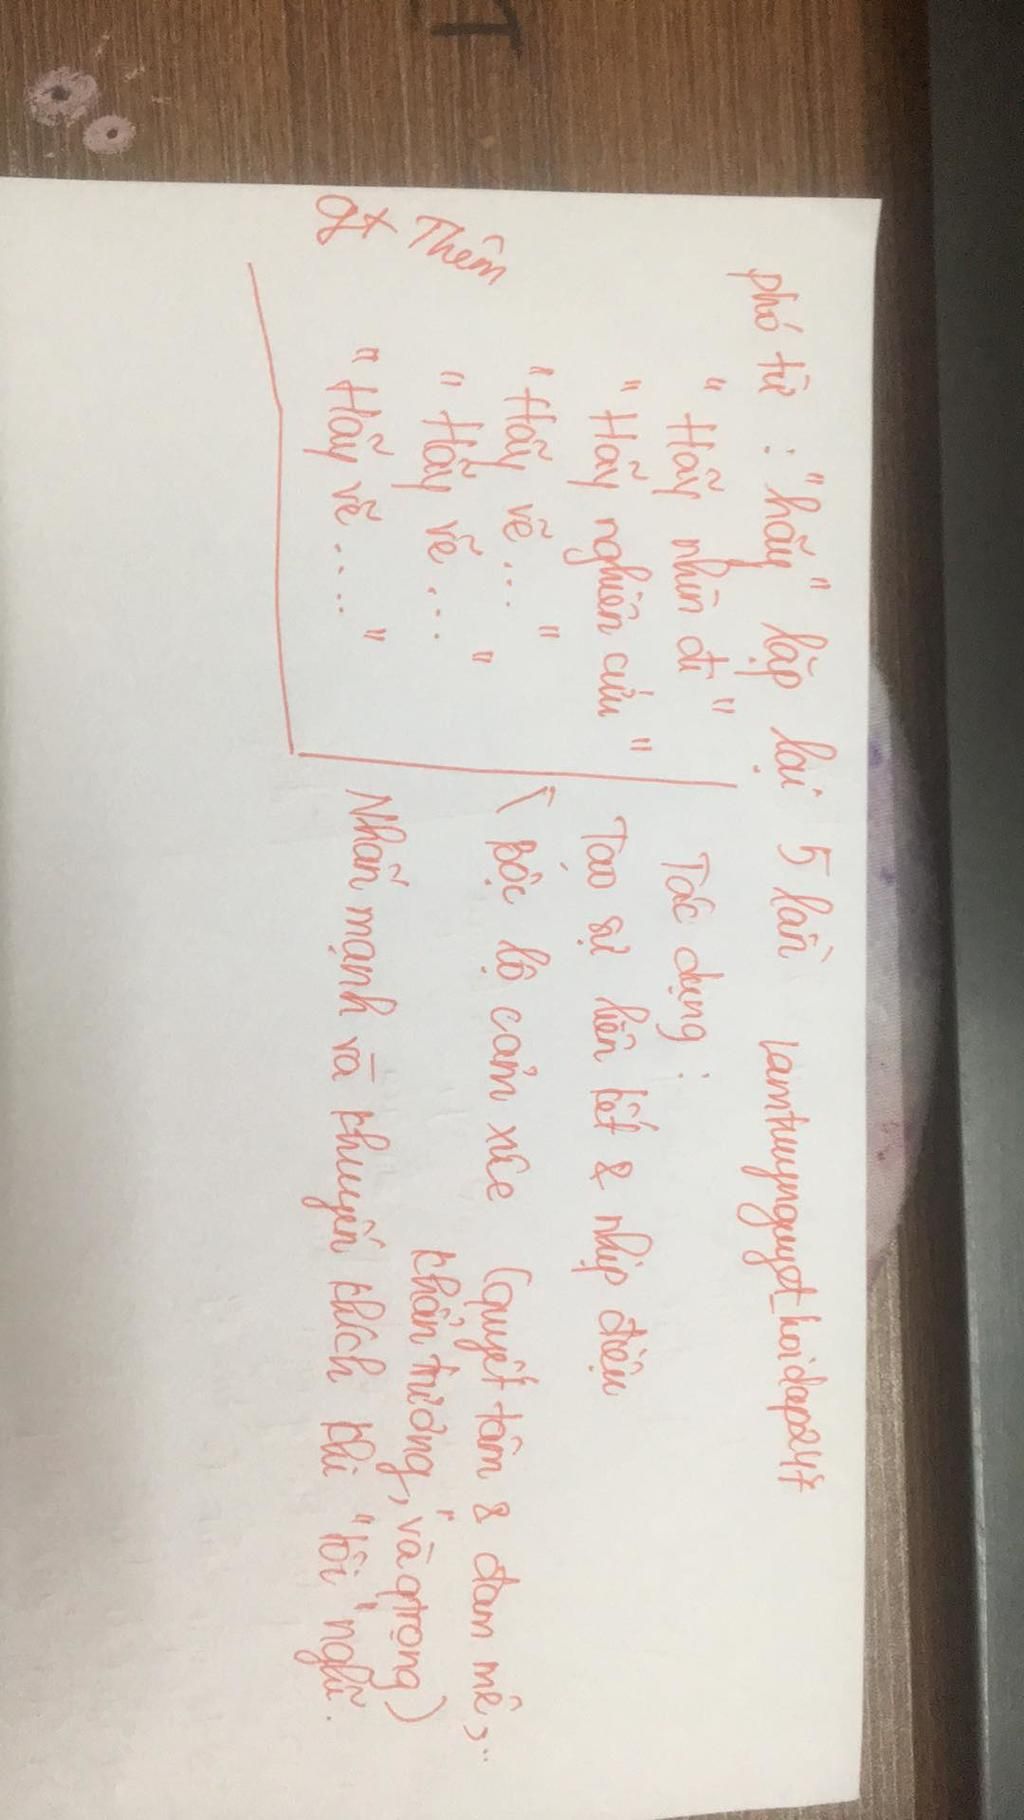 phó từ : "hãy" lặp lại 5 lần lamthuynguyet_hoidap247
"Hãy nhìn đi"
"Hãy nghiên cứu"
Thêm "Hãy vẽ... "
"Hãy vẽ ... "
gt "Hãy vẽ.... "
Tác dụng :
Tạo sự liên kết & nhịp điệu
Bộc lộ cảm xúc (quyết tâm & đam mê,..
khẩn trương, và qtrọng)
Nhấn mạnh và khuyến khích khi "tôi" nghĩ.